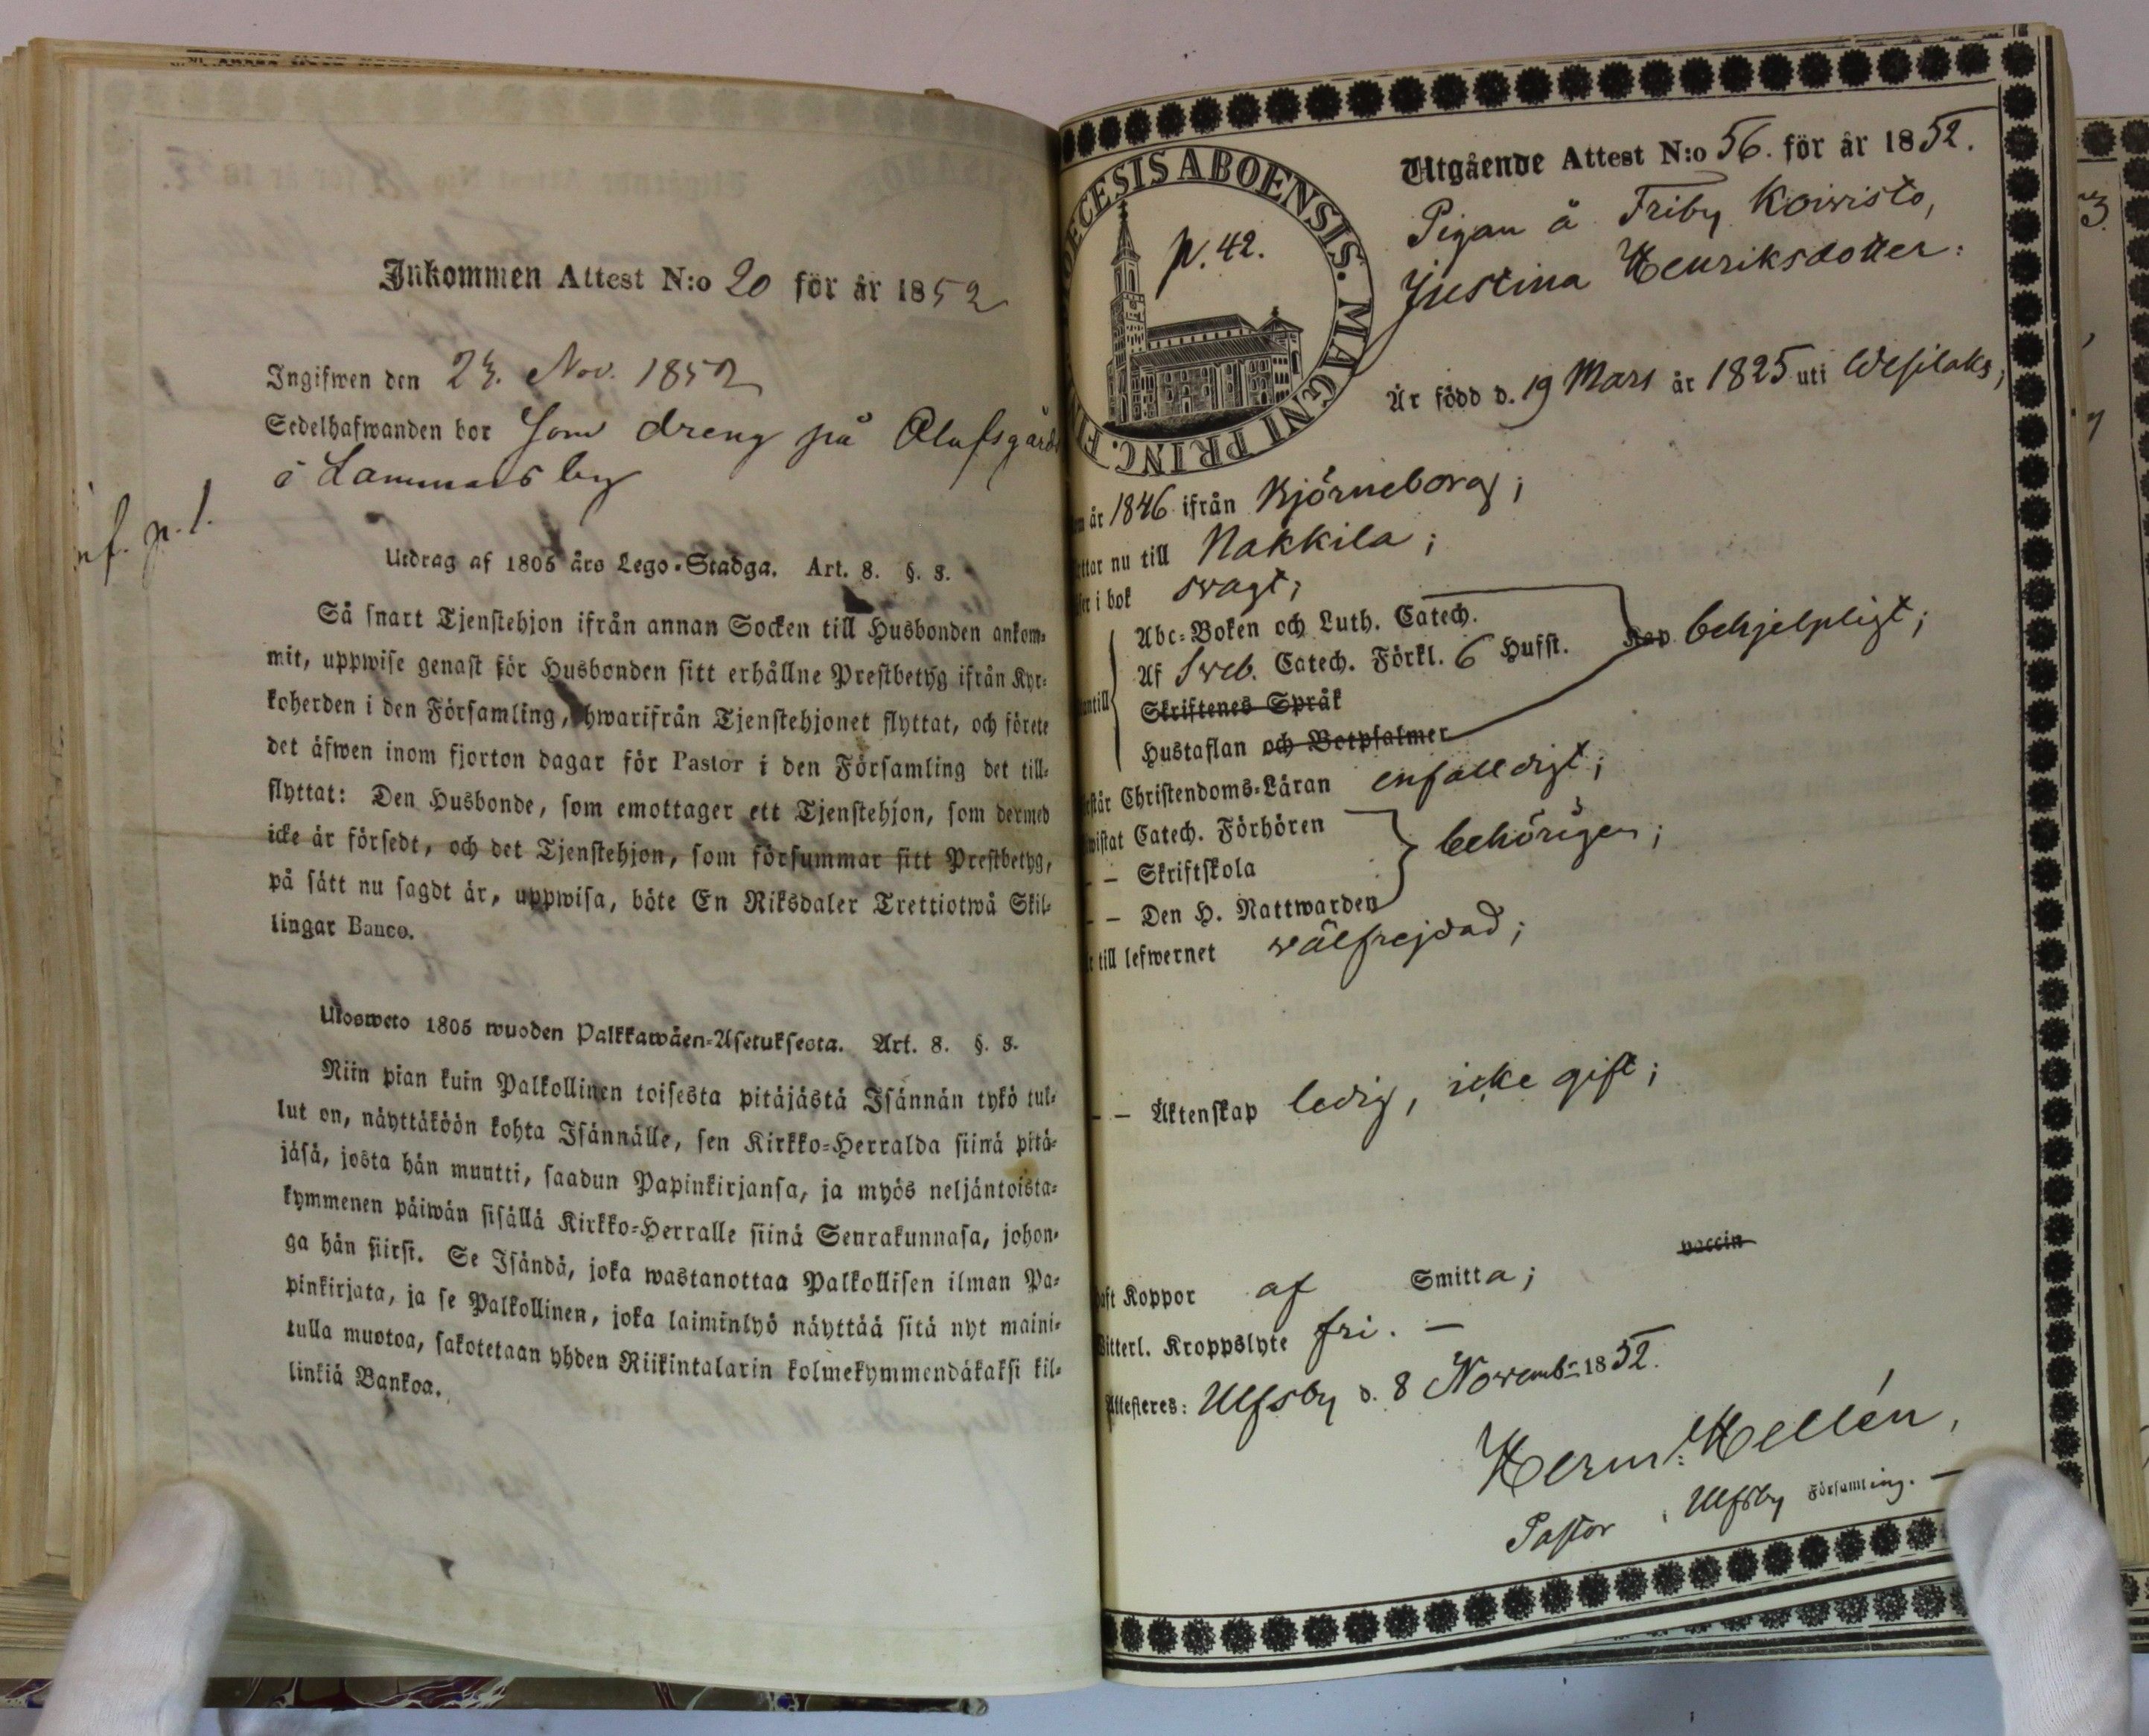 Inkommen Attest N:o 20 för år 1852
Ingifwen den 23. Nov. 1852
Sedelhafwanden bor Som dreng på Olufsgård
i Lammais by
inf. p. 1.
Utdrag af 1805 års Lego-Stadga. Art. 8. §. 3.
Så snart Tjenstehjon ifrån annan Socken till Husbonden ankom-
mit, uppwise genast för Husbonden sitt erhållne Prestbetyg ifrån Kyr-
koherden i den Församling, hwarifrån Tjenstehjonet flyttat, och förete
det äfwen inom fjorton dagar för Pastor i den Församling det till-
flyttat: Den Husbonde, som emottager ett Tjenstehjon, som dermed
icke är försedt, och det Tjenstehjon, som försummar sitt Prestbetyg,
på sätt nu sagdt är, uppwisa, böte En Riksdaler Trettiotwå Skil-
lingar Banco.
Ulosweto 1805 wuoden Palkkawäen-Asetuksesta. Art. 8. §. 3.
Niin pian kuin Palkollinen toisesta pitäjästä Isännän tykö tul-
lut on, näyttäköön kohta Isännälle, sen Kirkko-Herralda siinä pitä-
jäsä, josta hän muutti, saadun Papinkirjansa, ja myös neljäntoista-
kymmenen päiwän sisällä Kirkko-Herralle siinä Seurakunnasa, johon-
ga hän siirsi. Se Isändä, joka wastanottaa Palkollisen ilman Pa-
pinkirjata, ja se Palkollinen, joka laiminlyö näyttää sitä nyt maini-
tulla muotoa, sakotetaan yhden Riikintalarin kolmekymmendäkaksi kil-
linkiä Bankoa.
OECESIS ABOENSIS. MAGNI PRINC. F
p. 42.
Utgående Attest N:o 56. för år 1852.
Pigan å Friby Koivisto,
Justina Henriksdotter:
Är född d. 19 Mars år 1825 uti Wesilaks;
m år 1846 ifrån Björneborg;
ttar nu till Nakkila;
ser i bok svagt;
Abc-Boken och Luth. Catech.
Af Sveb. Catech. Förkl. 6 Hufst. Kap behjelpligt;
antill
Skriftenes Språk
Hustaflan och Botpsalmer
rstår Christendoms-Läran enfalldigt;
wistat Catech. Förhören
– – Skriftskola behörigen;
– – Den H. Nattwarden
r till lefwernet välfrejdad;
– – Äktenskap ledig, icke gift;
vaccin
aft Koppor af Smitta;
Witterl. Kroppslyte fri. –
Attesteres: Ulfsby d. 8 Novembr 1852.
Herm: Hellén,
Pastor i Ulfsby Församling. –